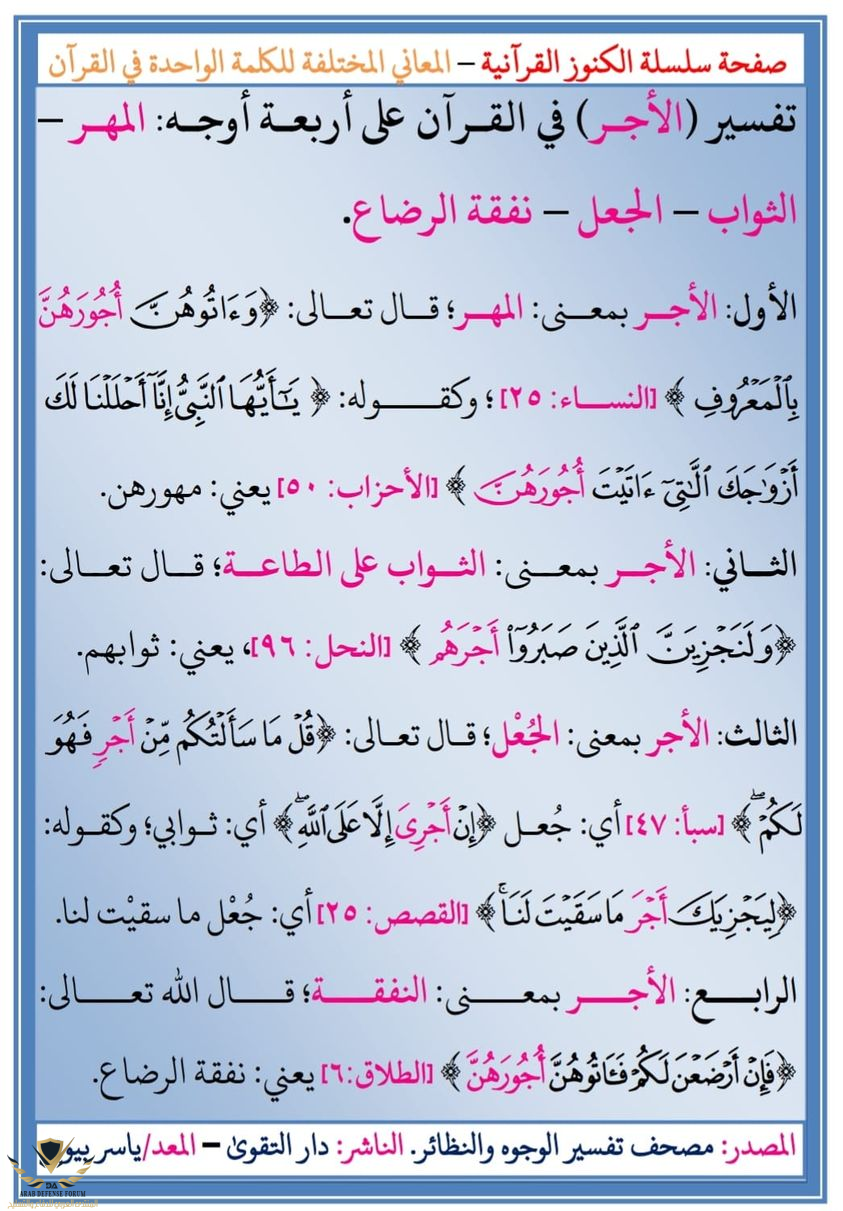 صفحة سلسلة الكنوز القرآنية – المعاني المختلفة للكلمة الواحدة في القرآن
تفسير (الأجر) في القرآن على أربعة أوجه: المهر –
الثواب – الجعل – نفقة الرضاع.
الأول: الأجر بمعنى: المهر؛ قال تعالى: ﴿وَءَاتُوهُنَّ أُجُورَهُنَّ
بِٱلْمَعْرُوفِ ﴾ [النساء: ٢٥] ؛ وكقوله: ﴿ يَـٰٓأَيُّهَا ٱلنَّبِىُّ إِنَّآ أَحْلَلْنَا لَكَ
أَزْوَٰجَكَ ٱلَّـٰتِىٓ ءَاتَيْتَ أُجُورَهُنَّ ﴾ [الأحزاب: ٥٠] يعني: مهورهن.
الثاني: الأجر بمعنى: الثواب على الطاعة؛ قال تعالى:
﴿وَلَنَجْزِيَنَّ ٱلَّذِينَ صَبَرُوٓا۟ أَجْرَهُم ﴾ [النحل: ٩٦]، يعني: ثوابهم.
الثالث: الأجر بمعنى: الجُعْل؛ قال تعالى: ﴿قُلْ مَا سَأَلْتُكُم مِّنْ أَجْرٍ فَهُوَ
لَكُمْ ۖ﴾ [سبأ: ٤٧] أي: جُعل ﴿إِنْ أَجْرِىَ إِلَّا عَلَى ٱللَّهِ ۖ﴾ أي: ثوابي؛ وكقوله:
﴿لِيَجْزِيَكَ أَجْرَ مَا سَقَيْتَ لَنَا ۚ﴾ [القصص: ٢٥] أي: جُعْل ما سقيْت لنا.
الرابع: الأجر بمعنى: النفقة؛ قال الله تعالى:
﴿فَإِنْ أَرْضَعْنَ لَكُمْ فَـَٔاتُوهُنَّ أُجُورَهُنَّ ﴾ [الطلاق:٦] يعني: نفقة الرضاع.
المصدر: مصحف تفسير الوجوه والنظائر. الناشر: دار التقوىٰ – المعد/ياسر
ARAB DEFENSE FORUM